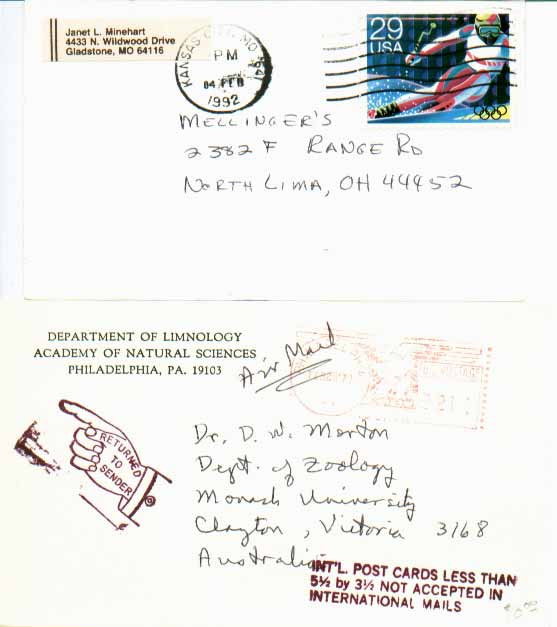 Janet L. Minehart
4433 N. Wildwood Drive
Gladstone, MO 64116
KANSAS CITY, MO 641
PM
04 FEB
1992
29
USA
MELLINGER'S
2382 F RANGE RD
NORTH LIMA, OH 44452
DEPARTMENT OF LIMNOLOGY
ACADEMY OF NATURAL SCIENCES
PHILADELPHIA, PA. 19103
Air Mail
U.S. POSTAGE
RETURNED
TO
SENDER
Dr. D. W. Morton
Dept. of Zoology
Monash University
Clayton, Victoria 3168
Australia
INT'L. POST CARDS LESS THAN
5½ by 3½ NOT ACCEPTED IN
INTERNATIONAL MAILS